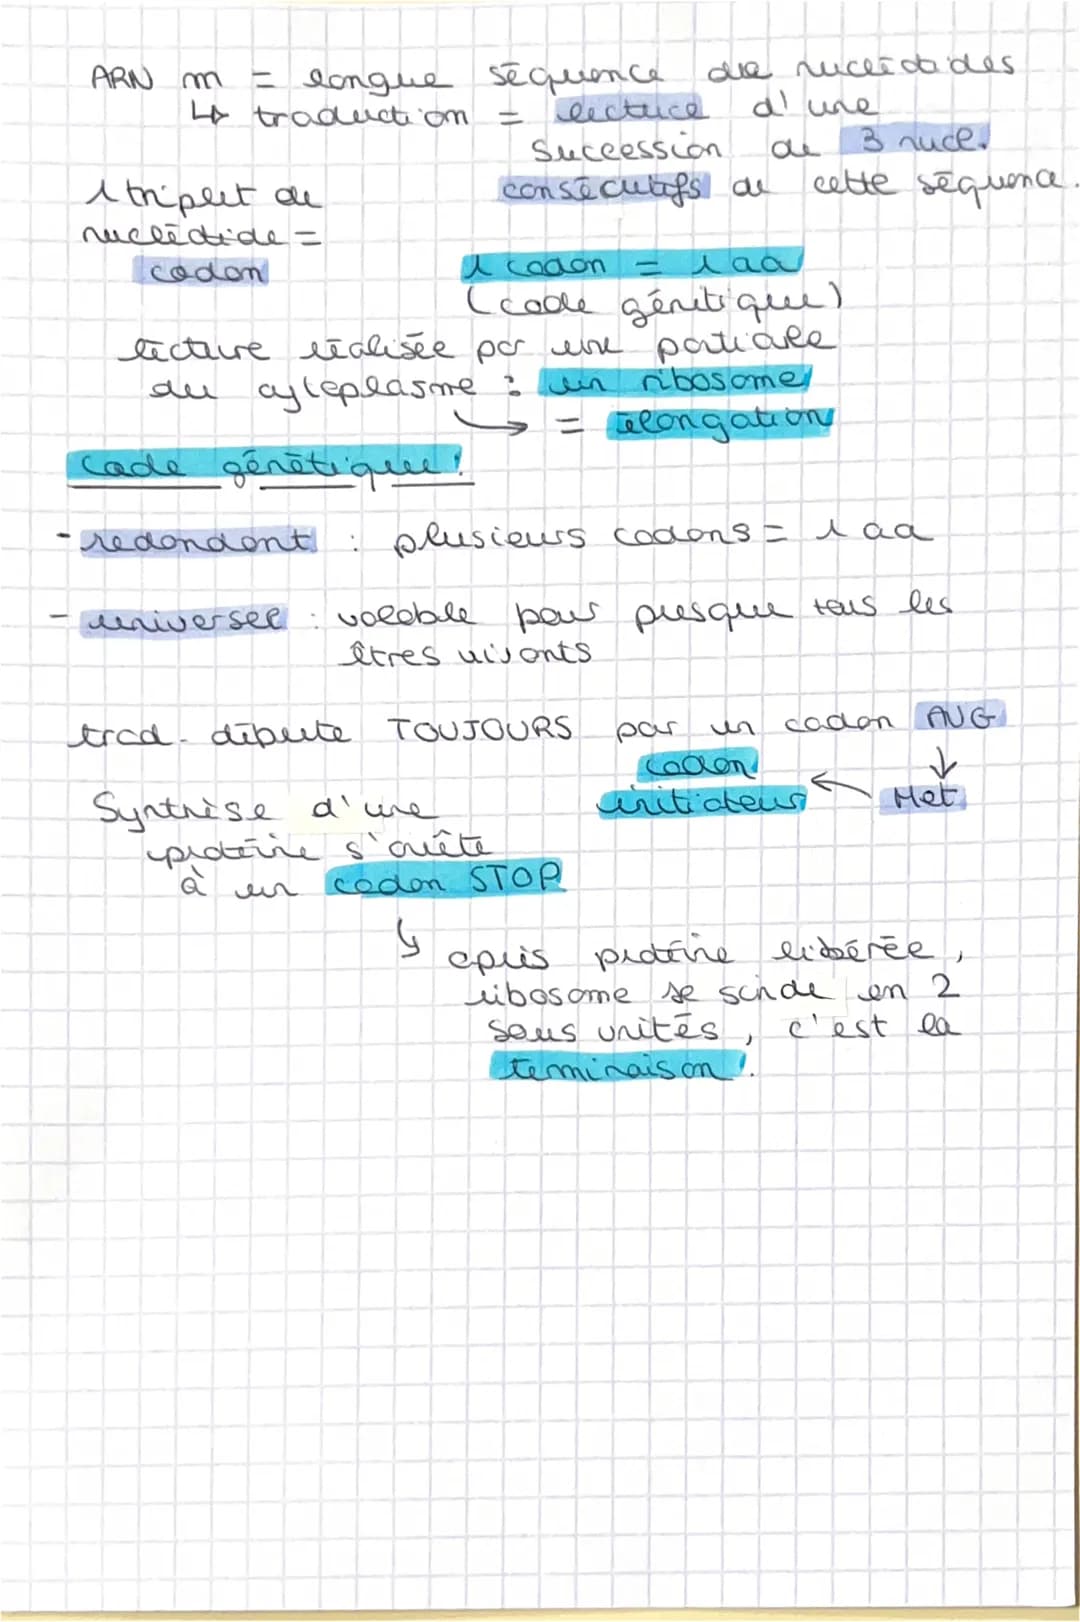 ARN m = longue séquence de nucléotides
↳ traduction = lecture d'une
succession de 3 nucl.
consécutifs de cette séquence.
1 triplet de
nucléotide =
codon
1 codon = 1 aa
(code génétique)
lecture réalisée par une particule
du cytoplasme : un ribosome
→ = élongation
Code génétique :
- redondant : plusieurs codons = 1 aa
- universel : valable pour presque tous les
êtres vivants
trad. débute TOUJOURS par un codon AUG
↓
codon
initiateur ← Met
Synthèse d'une
protéine s'arrête
à un codon STOP
↳ après protéine libérée,
ribosome se scinde en 2
sous unités, c'est la
terminaison.